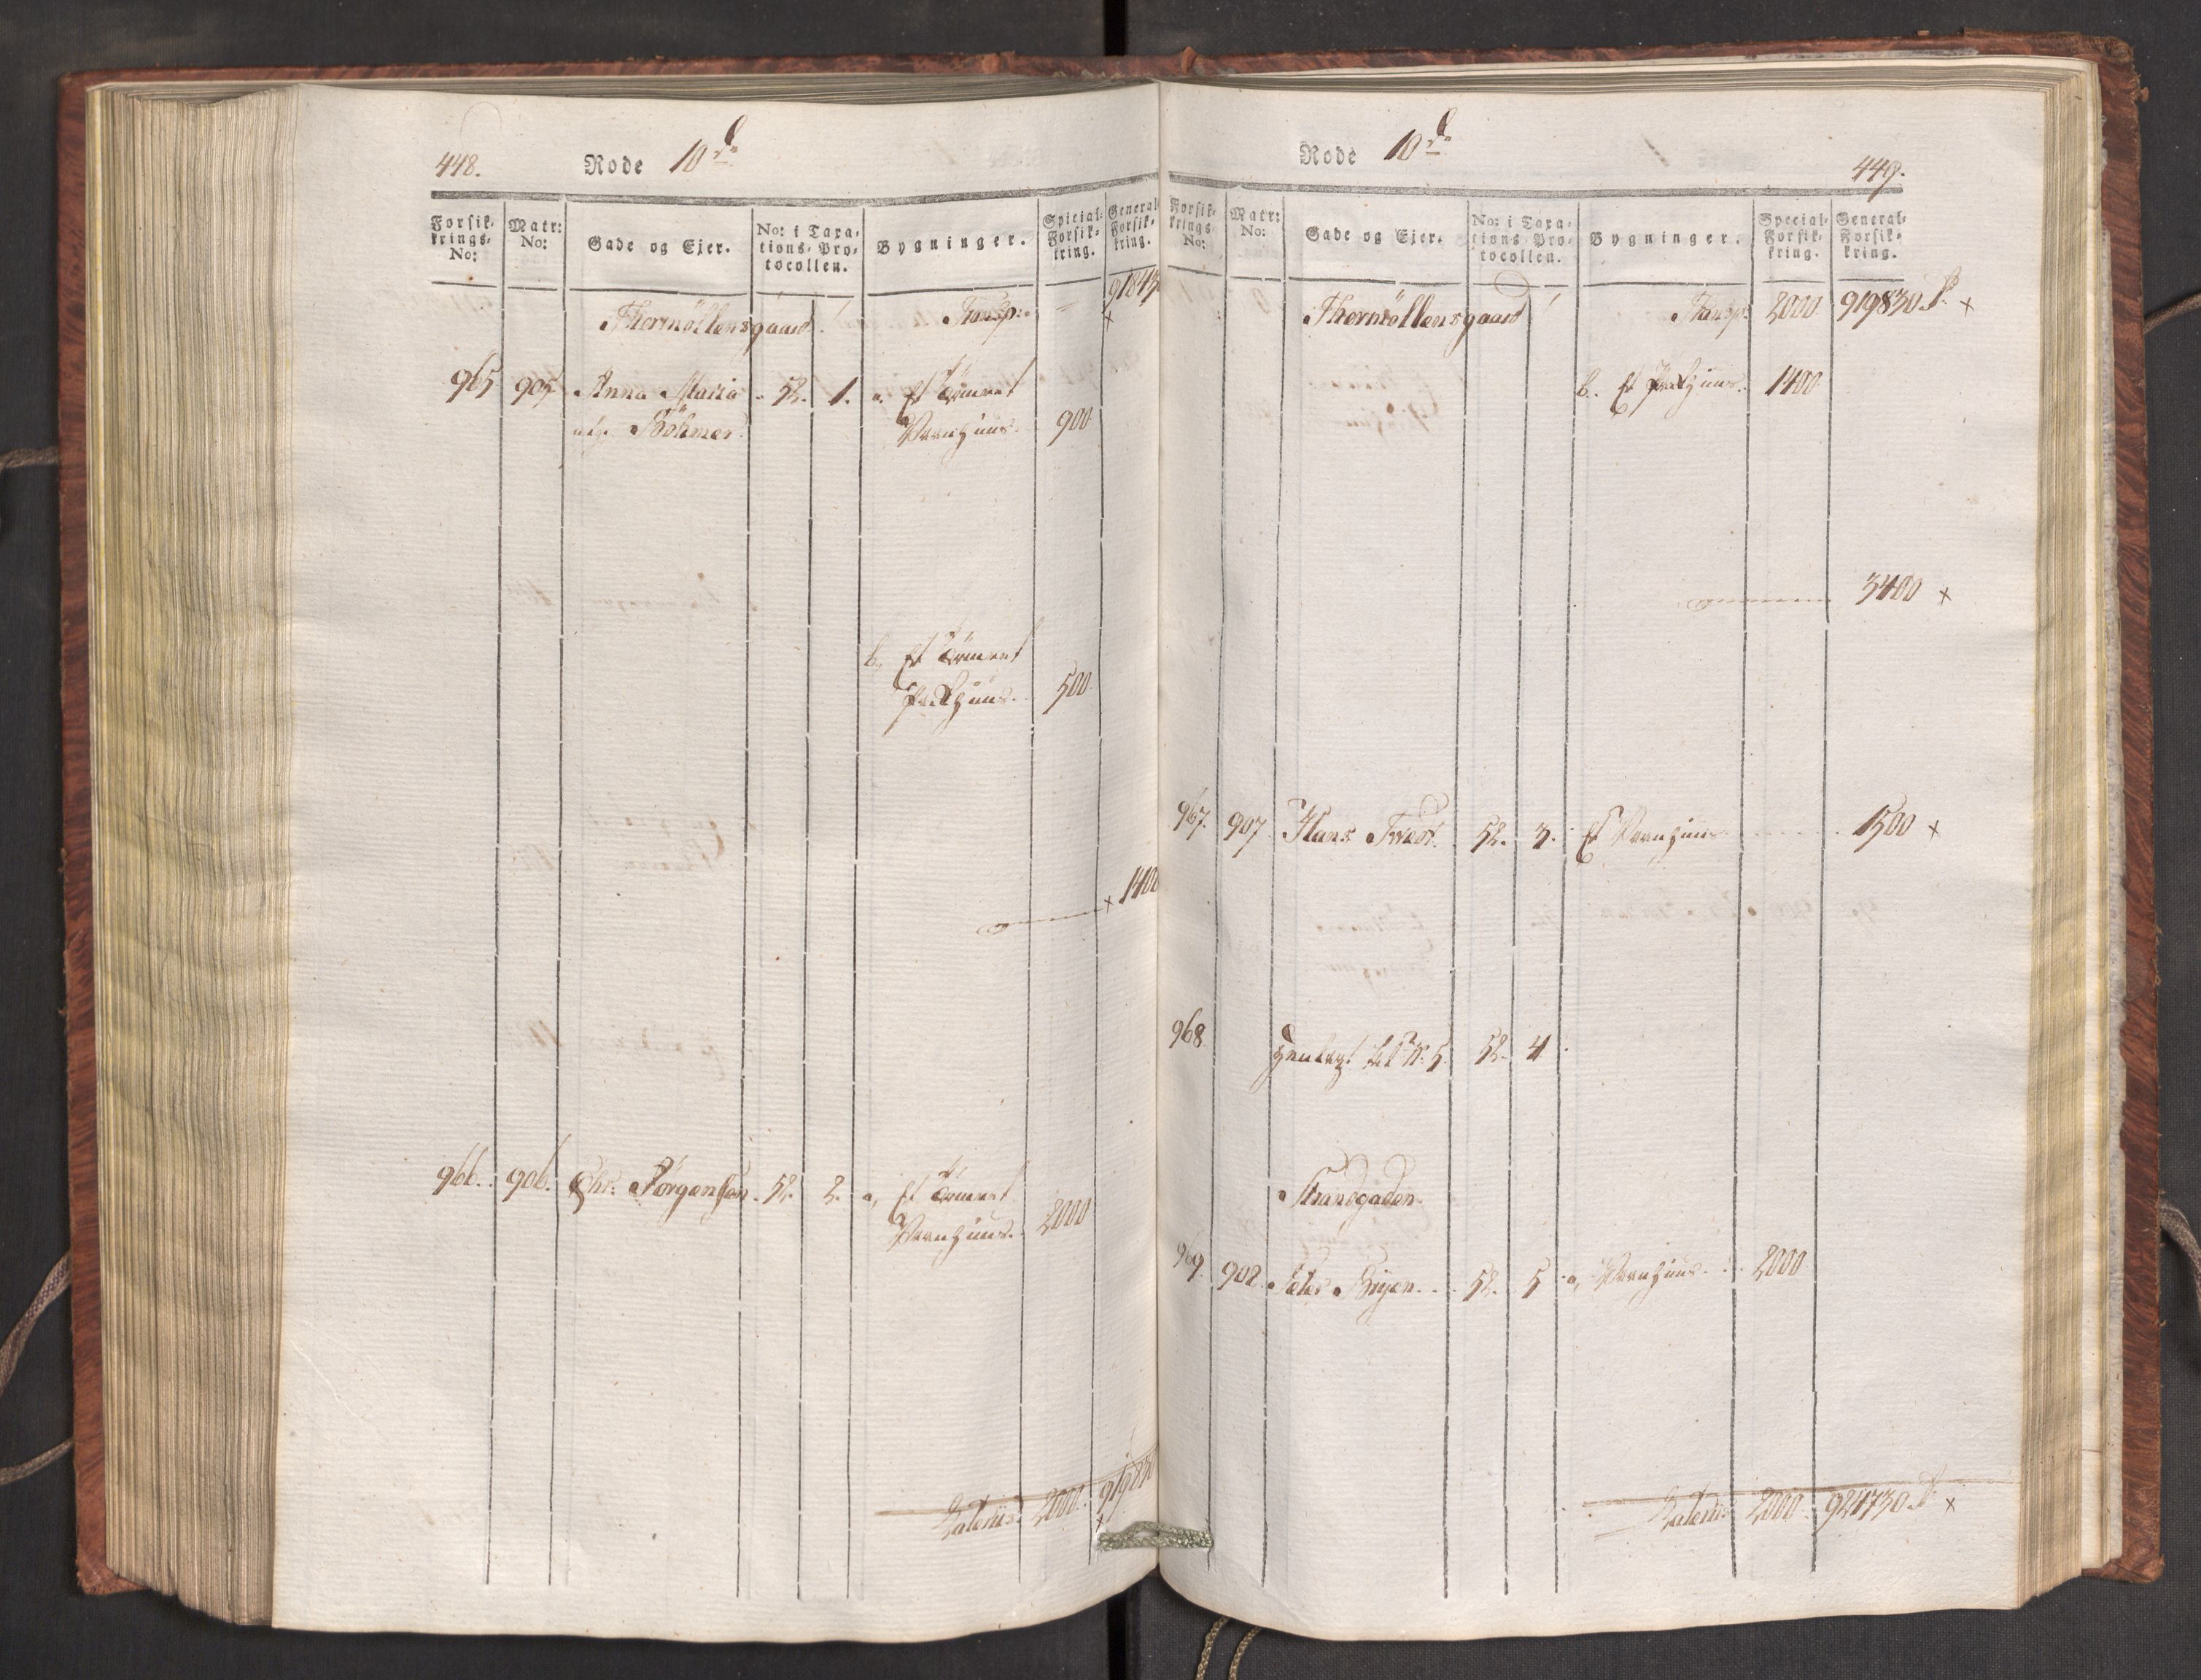 448.
Rode 10de
Forsik-
krings-
No:
Matr:
No:
Gade og Ejer.
No: i Taxa-
tions-Pro-
tocollen.
Bygninger.
Special-
Forsik-
kring.
General-
Forsik-
kring.
Thormöllensgaard Transp:
965 905 Anna Maria 52. 1. a. Et Tömret
Böhmer Vaanhuus. 900
b, Et Tömret
Pakhuus. 500
1400
966. 906. Chr: Jörgensen. 52. 2. a, Et Tömret
Vaanhuus. 2000
Lateris 2000 919830
Rode 10de
449.
Forsik-
krings-
No:
Matr:
No:
Gade og Ejer.
No: i Taxa-
tions-Pro-
tocollen.
Bygninger.
Special-
Forsik-
kring.
General-
Forsik-
kring.
Thormöllensgaard Transp: 2000 919830 x
b. Et Pakhuus. 1400
3400 x
967. 907 Hans Tvedt. 52. 3. Et Vaanhuus 1500 x
968 Henlagt 52. 4
Strandgaden.
969. 908. Peter Bryen 52. 5 a, Vaanhuus 2000
Lateris 2000 924730 x